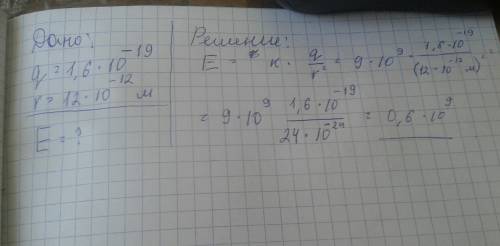 Дано:
q = 1,6 · 10⁻¹⁹
r = 12 · 10⁻¹² м
E = ?
Решение:
E = к · q/r² = 9 · 10⁹ · 1,6 · 10⁻¹⁹/(12 · 10⁻¹² м)² =
= 9 · 10⁹ 1,6 · 10⁻¹⁹/24 · 10⁻²⁴ = 0,6 · 10⁹